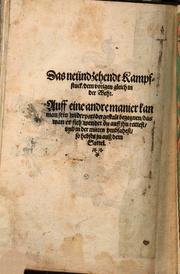 Das neündzehendt Kampf-
stuck / dem vorigen gleich in
der Wehr.
Auff eine andre manier kan
man sein widerpart dergestalt begegnen / das
wan er sich wendet du auff ihn reittest /
und in der mitten umbfahest /
so hebstu in auß dem
Sattel.